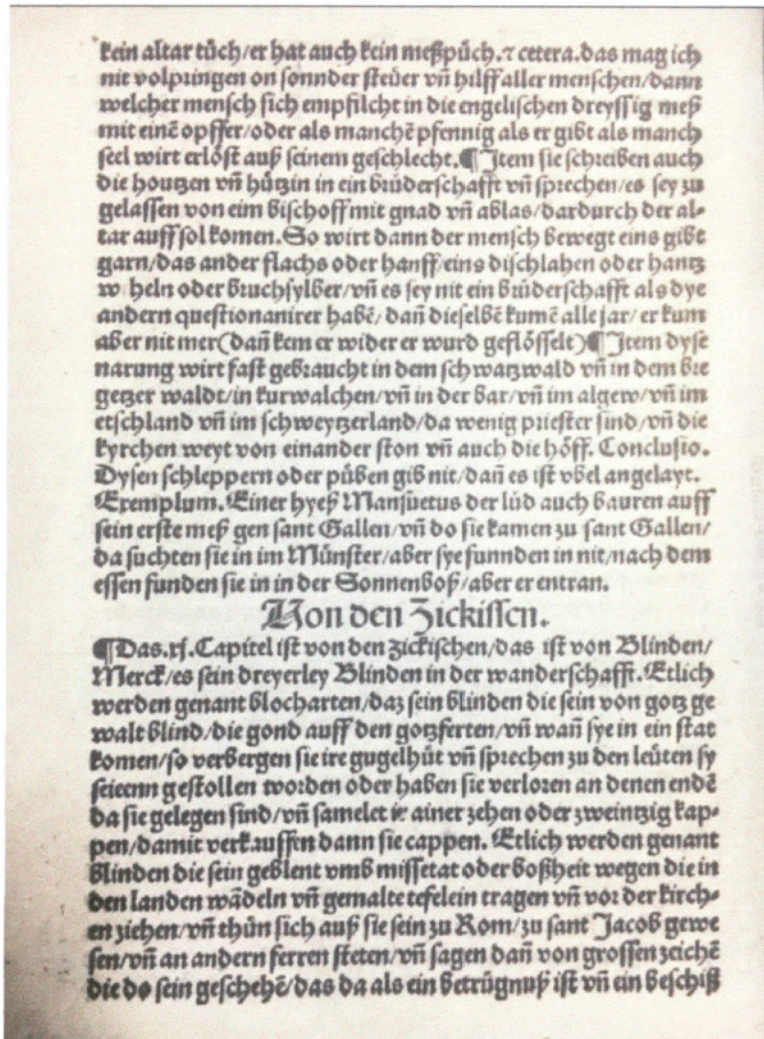 kein altar tůch/er hat auch kein meßpůch.⁊ cetera.das mag ich
nit volpringen on sonnder steüer vñ hilff aller menschen/dann
welcher mensch sich empfilcht in die engelischen dreyssig meß
mit einē opffer/oder als manchē pfennig als er gibt als manch
seel wirt erlőst auß seinem geschlecht.¶ Item sie schreiben auch
die houtzen vñ hůtzin in ein brůderschafft vñ sprechen/es sey zu
gelassen von eim bischoff mit gnad vñ ablas/dardurch der al-
tar auff sol komen.So wirt dann der mensch bewegt eins gibt
garn/das ander flachs oder hanff/eins dischlahen oder hantz
w heln oder bruchsylber/vñ es sey nit ein brůderschafft als dye
andern questionanirer habē/dañ dieselbē kumē alle jar/er kum
aber nit mer(dañ kem er wider er wurd geflősselt)¶ Item dyse
narung wirt fast gebraucht in dem schwartzwald vñ in dem bre
getzer waldt/in kurwalchen/vñ in der bar/vñ im algew/vñ im
etschland vñ im schweytzerland/da wenig priester sind/vñ die
kyrchen weyt von einander ston vñ auch die hőff. Conclusio.
Dysen schleppern oder půben gib nit/dañ es ist vbel angelayt.
Exemplum.Einer hyeß Mansuetus der lůd auch bauren auff
sein erste meß gen sant Gallen/vñ do sie kamen zu sant Gallen/
da suchten sie in im Můnster/aber sye funnden in nit/nach dem
essen funden sie in in der Sonnenboß/aber er entran.
Von den Zickissen.
¶Das.xj.Capitel ist von den zickischen/das ist von Blinden/
Merck/es sein dreyerley Blinden in der wanderschafft.Etlich
werden genant blocharten/daz sein blinden die sein von gotz ge
walt blind/die gond auff den gotzferten/vñ wañ sye in ein stat
komen/so verbergen sie ire gugelhůt vñ sprechen zu den leüten sy
seieenn gestollen worden oder haben sie verloren an denen endē
da sie gelegen sind/vñ samelet ir ainer zehen oder zweintzig kap-
pen/damit verkauffen dann sie cappen. Etlich werden genant
blinden die sein geblent vmb missetat oder boßheit wegen die in
den landen wādeln vñ gemalte tefelein tragen vñ vor der kirch-
en ziehen/vñ thůn sich auß sie sein zu Rom/zu sant Jacob gewe
sen/vñ an andern ferren steten/vñ sagen dañ von grossen zeichē
die do sein geschehē/das da als ein betrůgnuß ist vñ ein beschiß